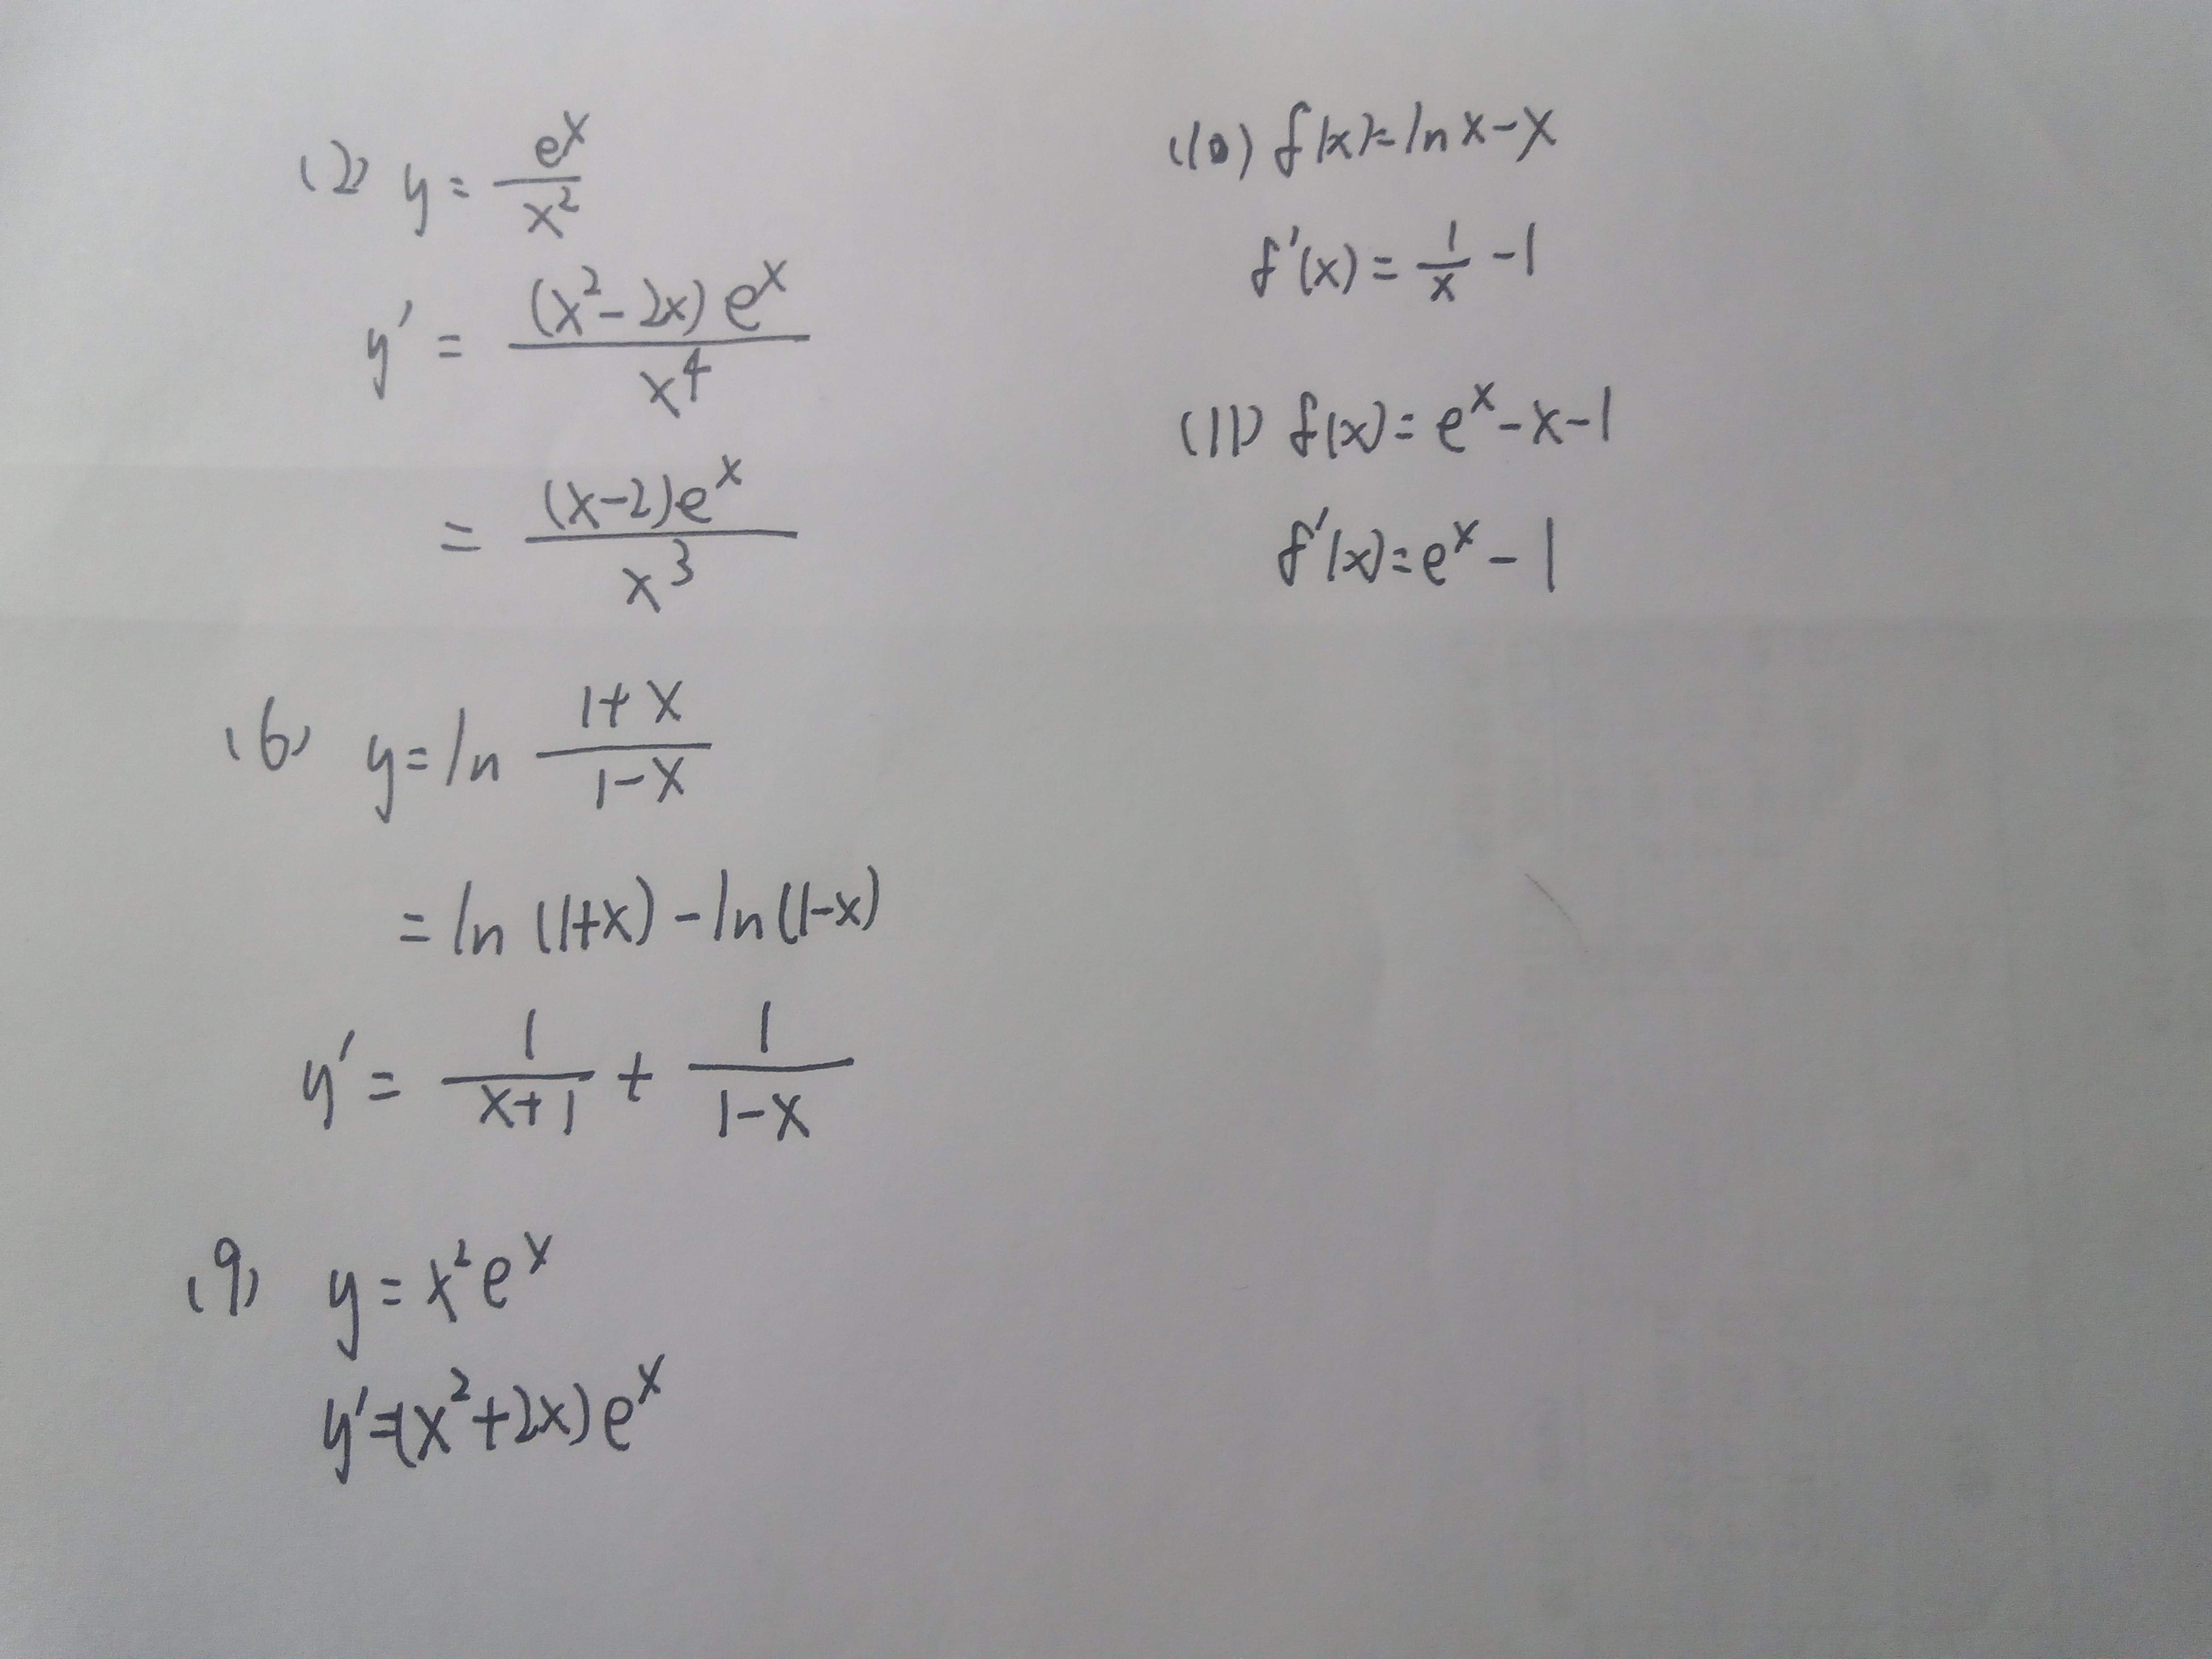 (2) y = e^x / x^2
y' = (x^2 - 2x) e^x / x^4
= (x-2)e^x / x^3
(6) y = ln (1+x)/(1-x)
= ln (1+x) - ln (1-x)
y' = 1/(x+1) + 1/(1-x)
(9) y = x^2 e^x
y' = (x^2+2x) e^x
(10) f(x) = ln x - x
f'(x) = 1/x - 1
(11) f(x) = e^x - x - 1
f'(x) = e^x - 1